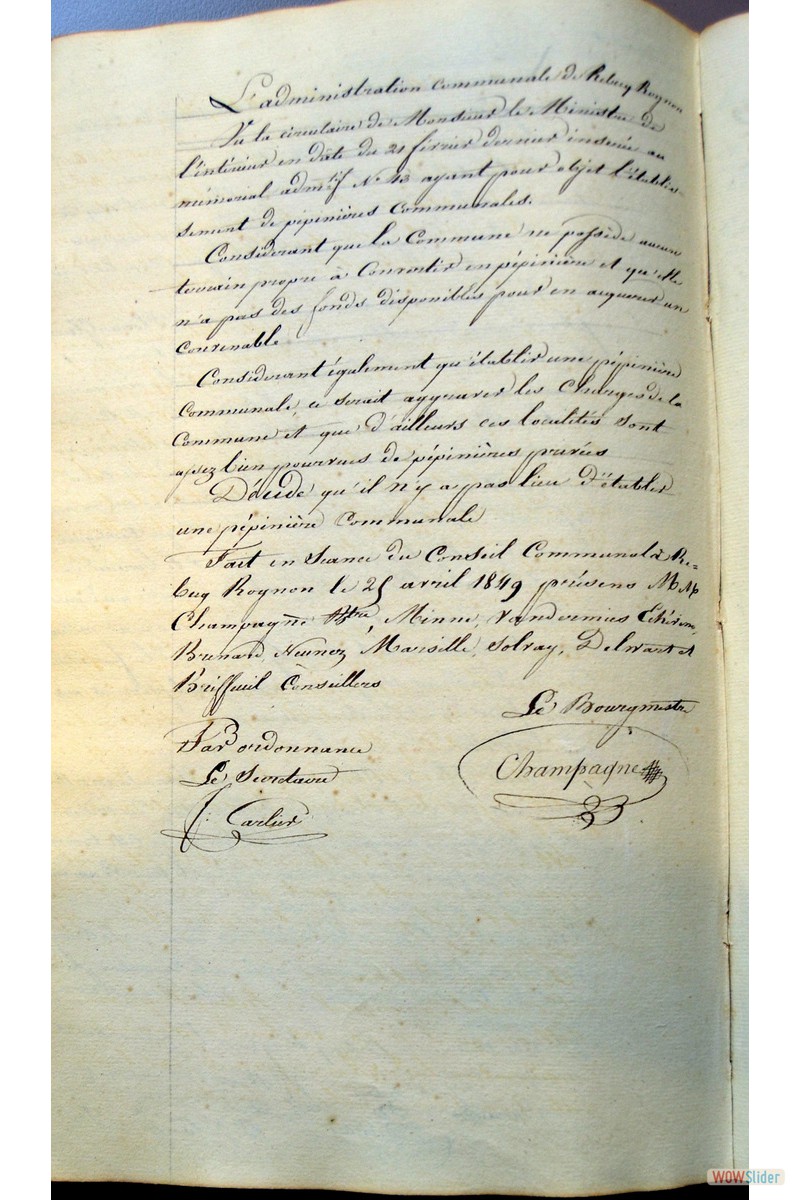 L'administration communale de Rebecq Rognon
Vu la circulaire de Monsieur le Ministre de
l'intérieur en date du 21 février dernier insérée au
mémorial admtif No 43 ayant pour objet l'établis-
sement de pépinières Communales.
Considérant que la Commune ne possède aucun
terrain propre à Convertir en pépinière et qu'elle
n'a pas des fonds disponibles pour en acquérer un
convenable
Considérant également qu'établir une pépinière
Communale, ce serait aggraver les Charges de la
Commune et que d'ailleurs ces localités sont
assez bien pourvues de pépinières privées
Décide qu'il n'y a pas lieu d'établir
une pépinière Communale
Fait en Séance du Conseil Communal à Re-
becq Rognon le 25 avril 1849 présens MM
Champagne Bgtre, Minne, Vandernies
Brunard, Marsille, Solvay, Delwart et
Briffeuil Conseillers
Le Bourgmestre
Par ordonnance
Champagne
Le Secrétaire
Carlier
WOWSlider